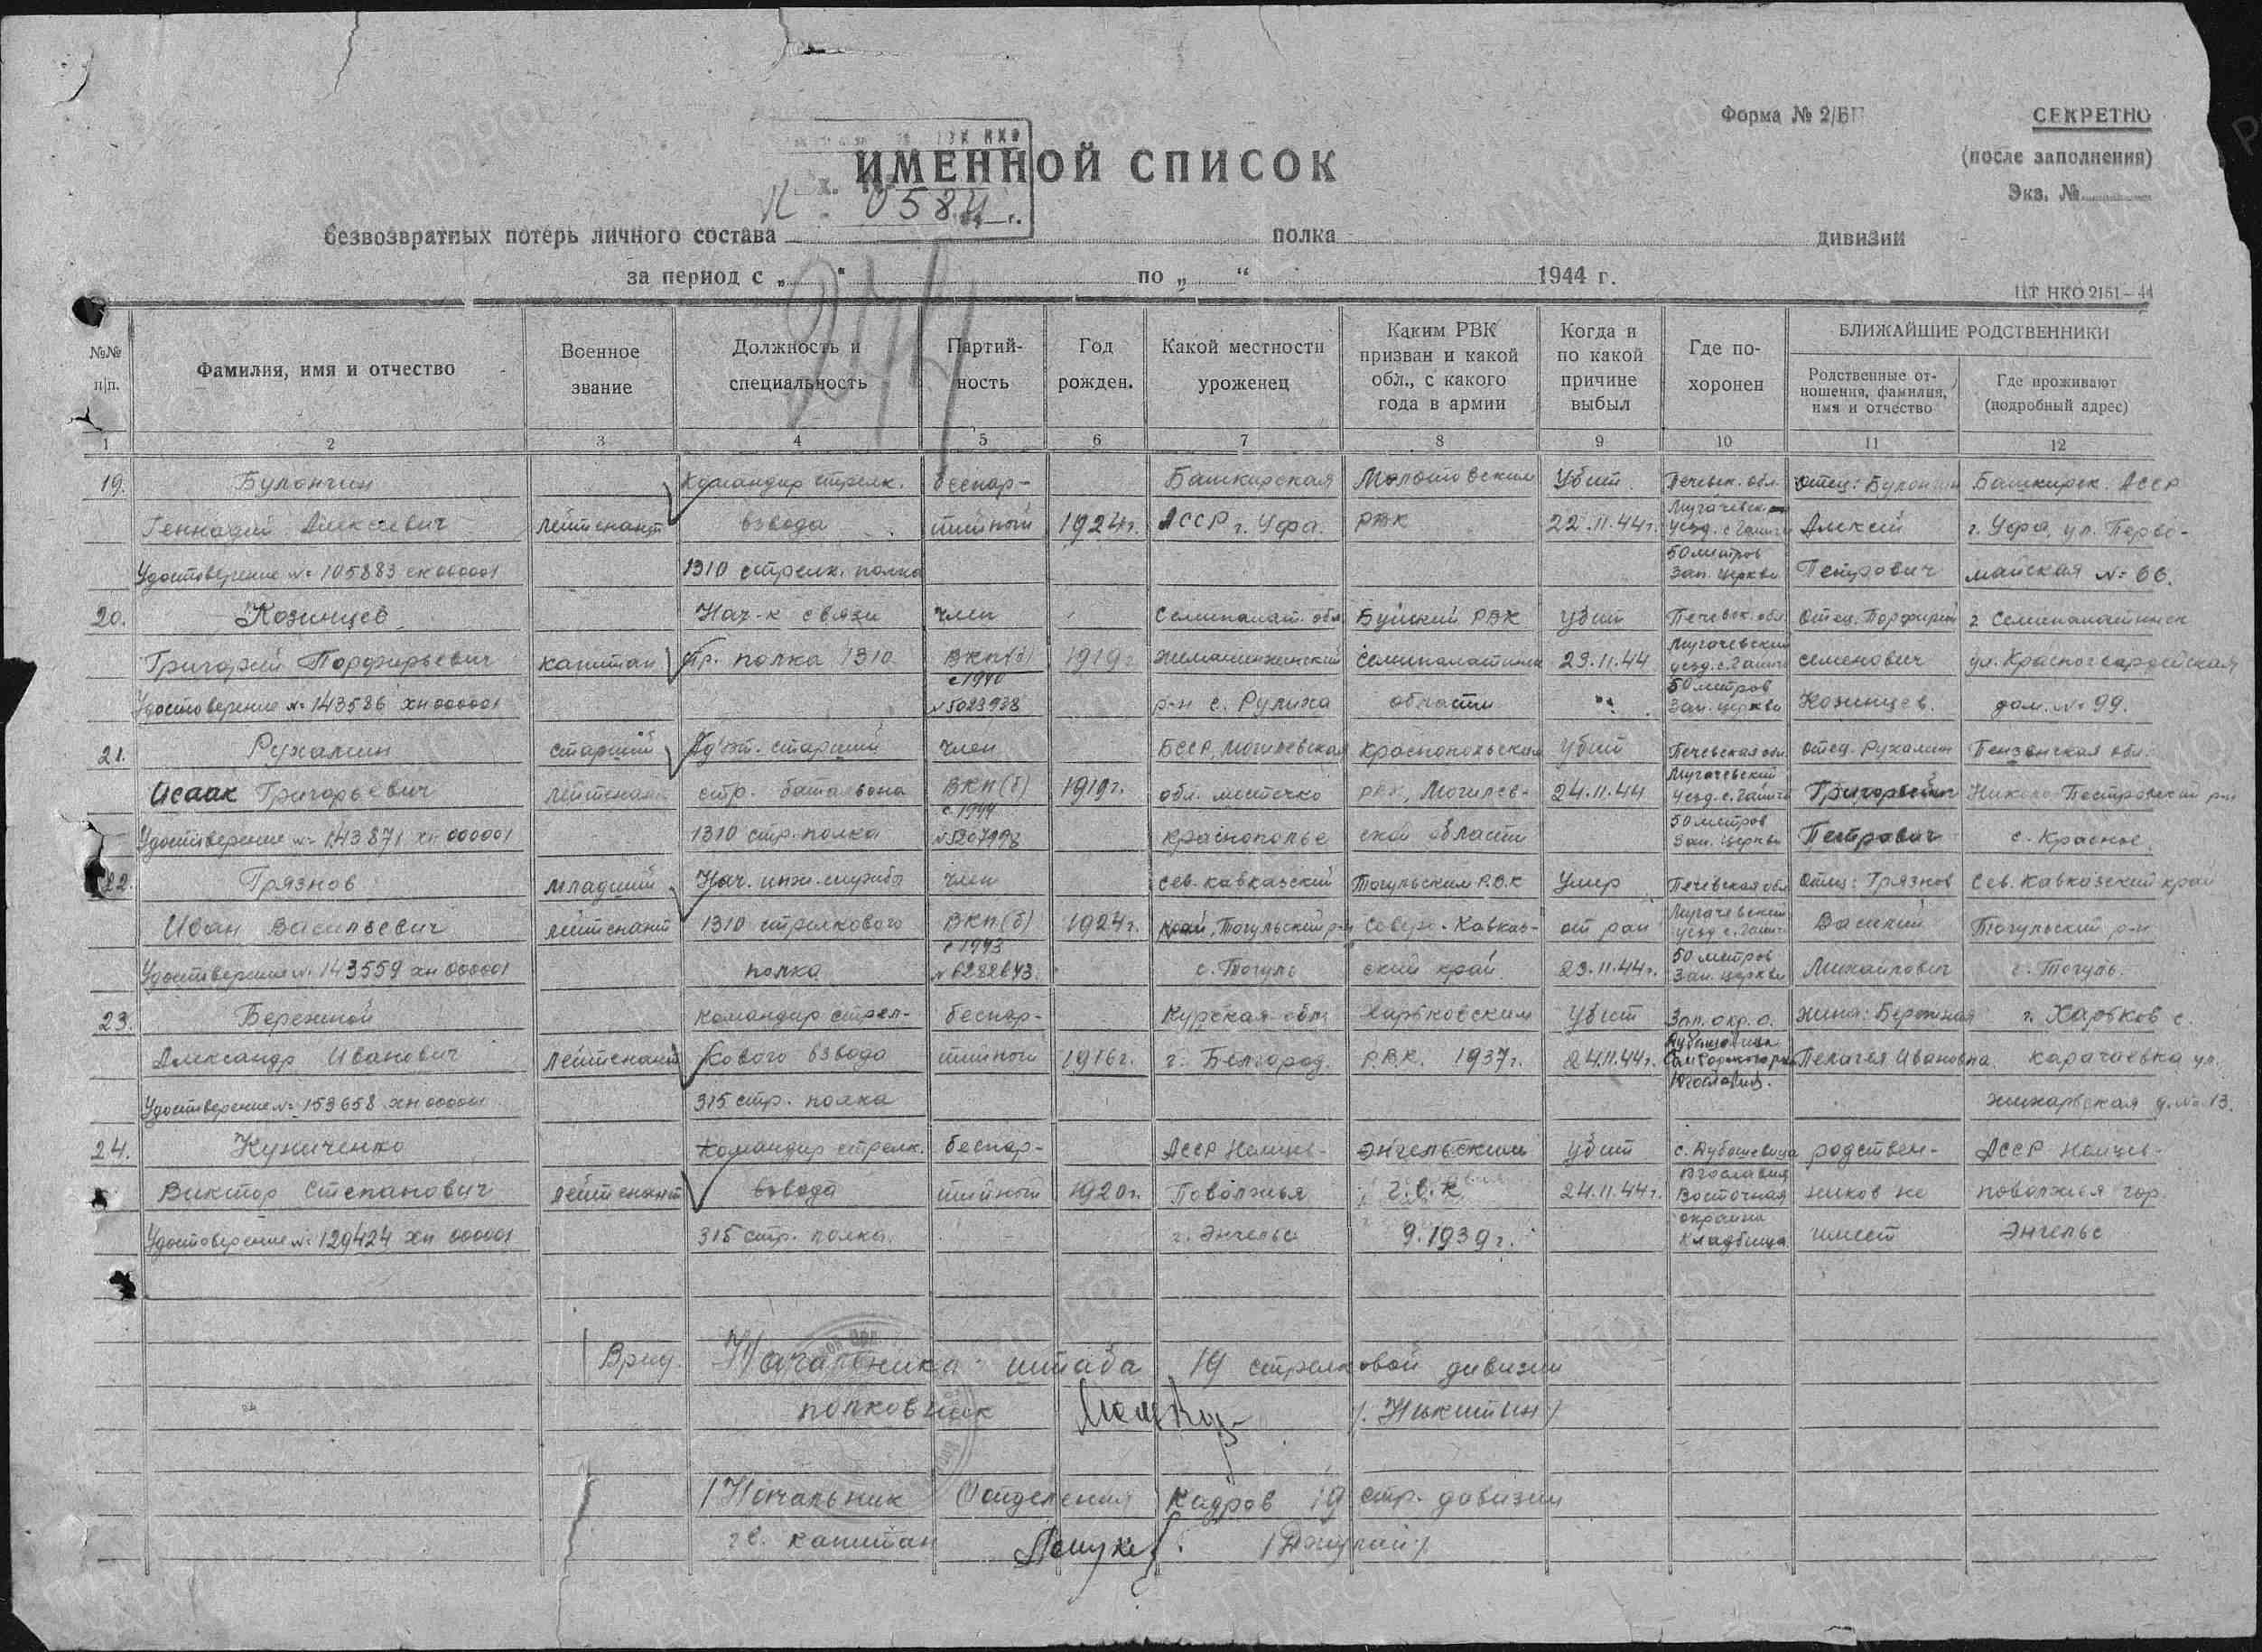 Форма № 2/БП
СЕКРЕТНО
(после заполнения)
Экз. №
ИМЕННОЙ СПИСОК
0584 г.
безвозвратных потерь личного состава полка дивизии
за период с „ “ по „ “ 1944 г.
ЦТ НКО 2151—44
№№ п/п.
Фамилия, имя и отчество
Военное звание
Должность и специальность
Партий-
ность
Год рожден.
Какой местности уроженец
Каким РВК призван и какой обл., с какого года в армии
Когда и по какой причине выбыл
Где по-
хоронен
БЛИЖАЙШИЕ РОДСТВЕННИКИ
Родственные от-
ношения, фамилия, имя и отчество
Где проживают (подробный адрес)
1 2 3 4 5 6 7 8 9 10 11 12
19. Булончин Командир стрелк. беспар- Башкирская Молотовским Убит Печевск. обл. отец: Булончин Башкирск. АССР
Геннадий Алексеевич лейтенант взвода тийный 1924г. АССР г. Уфа. РВК 22.11.44г. уезд. с. Алексей г. Уфа, ул. Перво-
Удостоверение № 105883 000001 1310 стрелк. полка 50 метров Зап. церкви Петрович майская № 66.
20. Козинцев Нач-к связи член Семипалат. обл. РВК убит Печевск. обл. Отец. Порфирий г. Семипалатинск
Григорий Порфирьевич капитан стр. полка 1310 ВКП(б) с 1940 1919г 23.11.44 уезд. с. семенович ул. Красногвардейская
Удостоверение № 143586 хн 000001 № 5023938 р-н с. Рулиха области 50 метров Зап. церкви Козинцев. дом. № 99.
21. Рухамин старший Ад'ют. старший член БССР, Могилевская краснопольским убит Печевская обл. отец. Рухамин Пензенская обл.
Исаак Григорьевич лейтенант стр. батальона ВКП(б) с 1944 1919г. обл. местечко РВК, Могилев- 24.11.44 уезд. с. Григорий Николо Пестровский р-н
Удостоверение № 143871 хн 000001 1310 стр. полка краснополье ской области 50 метров Зап. церкви Петрович с. Красное.
22. Грязнов младший Нач. инж. службы член сев. кавказский Тогульским Р.В.К Умер Печевская обл Отец: Грязнов Сев. Кавказский край
Иван Васильевич лейтенант 1310 стрелкового ВКП(б) с 1943 1924г. край, Тогульский р-н Северо-Кавказ- от ран уезд с. Василий Тогульский р-н
Удостоверение № 143559 хн 000001 полка с. Тогуль ский край. 23.11.44г. 50 метров Зап. церкви Михайлович с. Тогуль.
23. Бережной командир стрел- беспар- Курская обл Харьковским Убит Зап. окр. с. жена: Бережная г. Харьков с.
Александр Иванович лейтенант кового взвода тийный 1916г. г. Белгород. Р.В.К. 1937г. 24.11.44г. Пелагея Ивановна карачаевка ул.
Удостоверение № 153658 хн 000001 315 стр. полка Югославия. жихарская д. № 13.
24. Куниченко Командир стрелк. беспар- АССР Немцев- Энгельсским убит с. Дубашевица родствен- АССР Немцев-
Виктор Степанович лейтенант взвода тийный 1920г. Поволжья Г.В.К 24.11.44г. Югославия Восточная ников не поволжья гор.
Удостоверение № 129424 хн 000001 315 стр. полка. г. Энгельс 9.1939г. окраина кладбища. имеет Энгельс
Врид. Начальника штаба 19 стрелковой дивизии
полковник /. Никитин /
/Начальник Отделения Кадров 19 стр. дивизии
гв. капитан